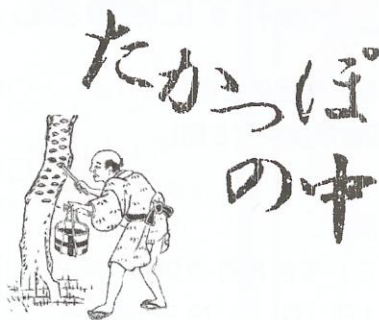 たかっぽ
の中